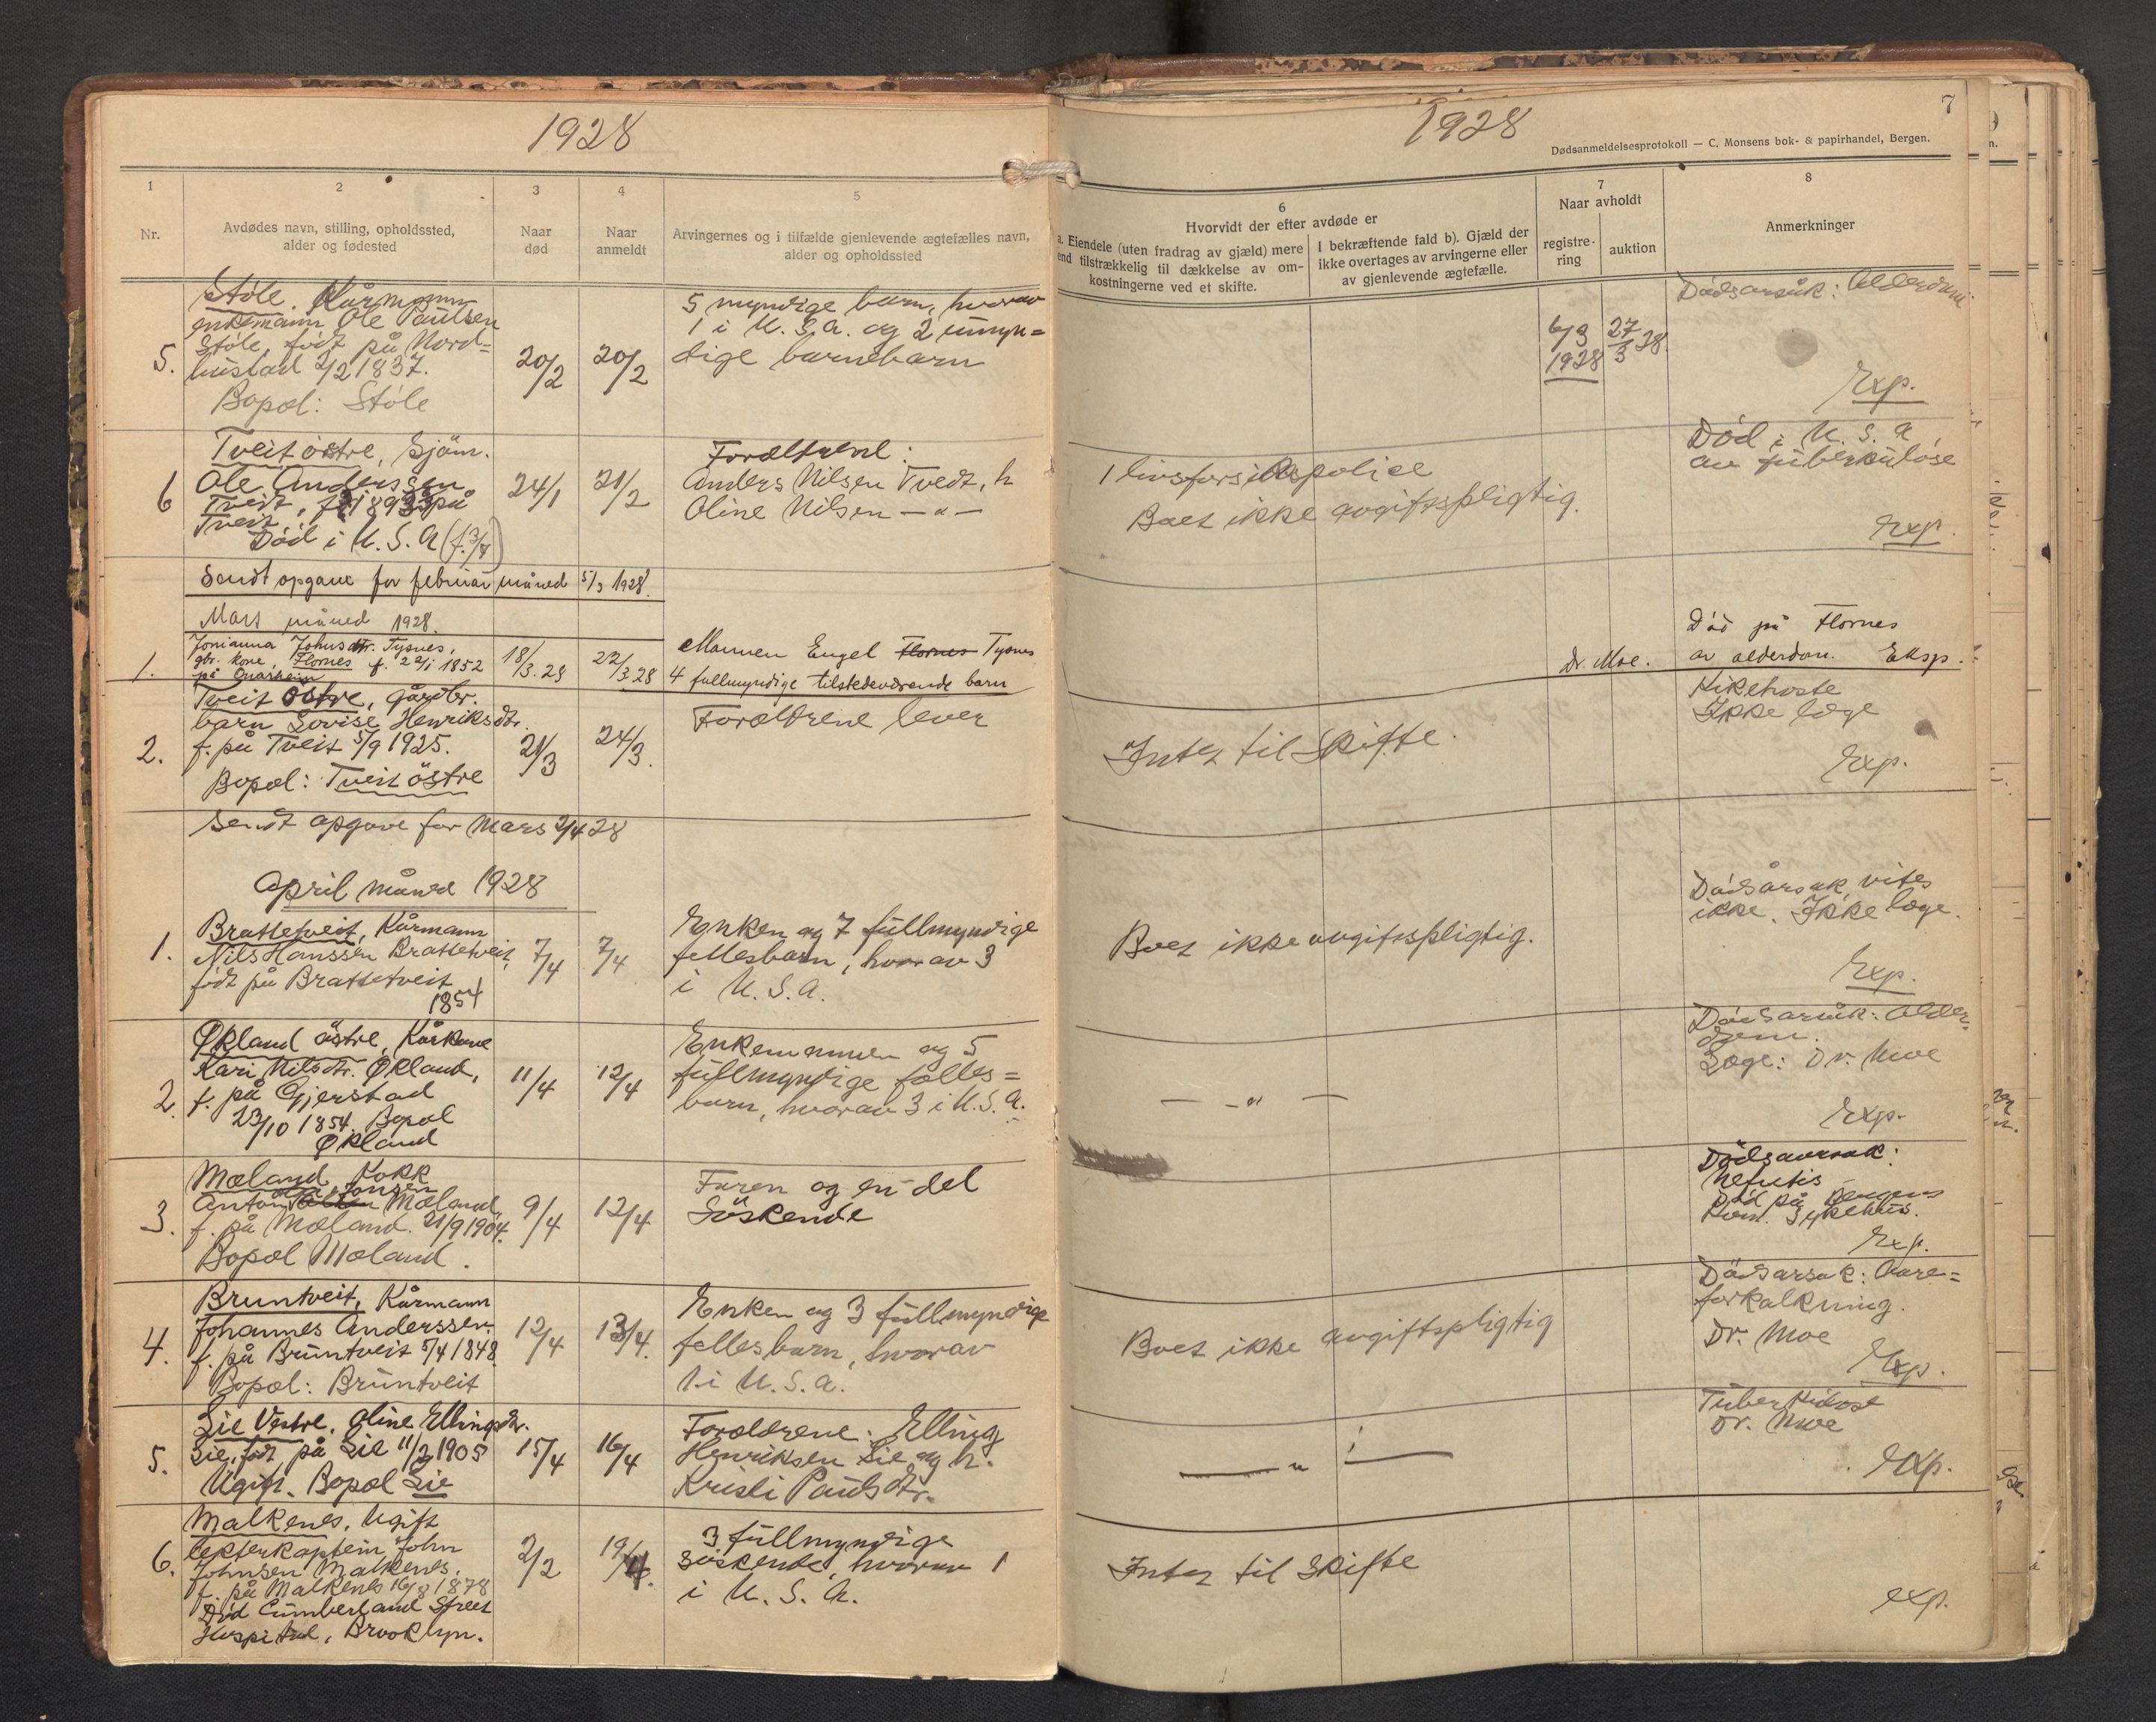 1928
1
2
3
4
5
Nr.
Avdødes navn, stilling, opholdssted,
alder og fødested
Naar
død
Naar
anmeldt
Arvingernes og i tilfælde gjenlevende ægtefælles navn,
alder og opholdssted
5.
Støle. Kårmann
enkemann Ole Paulsen
Støle, født på Nord=
hustad 2/2 1837.
Bopæl: Støle
20/2
20/2
5 myndige barn, hvorav
1 i U.S.A. og 2 umyn=
dige barnebarn
6
Tveit östre, Sjöm.
Ole Anderssen
Tveit, f. 1893 på
Tveit
Död i U.S.A (f. 3/7)
24/1
21/2
Foreldrene:
Anders Nilsen Tvedt, h
Oline Nilsen — " —
Sendt opgave for februar måned 5/3 1928.
Mars måned 1928.
1.
Jonianna Johnsdtr. Tysnes,
gbr. kone, Flornes f. 22/1 1852
på Onarheim
18/3.28
22/3.28
Mannen Engel Flornes Tysnes
4 fullmyndige tilstedeværende barn
2.
Tveit östre, gårdbr.
barn Lovise Henriksdtr.
f. på Tveit 5/9 1925.
Bopæl: Tveit östre
21/3
24/3.
Foreldrene lever
Sendt opgave for Mars 2/4 28
April måned 1928
1.
Brattetveit, Kårmann
Nils Hanssen Brattetveit,
født på Brattetveit
1854
7/4
7/4
Enken og 7 fullmyndige
fellesbarn, hvorav 3
i U.S.A.
2.
Økland östre, Kårkone
Kari Nilsdtr. Økland,
f. på Gjerstad
23/10 1854. Bopæl
Økland
11/4
12/4
Enkemannen og 5
fullmyndige fælles=
barn, hvorav 3 i U.S.A.
3.
Mæland, Kokk
Anton Tonsen Mæland,
f. på Mæland. 21/9 1904.
Bopæl Mæland.
9/4
12/4
Faren og en del
Söskende
4.
Bruntveit, Kårmann
Johannes Anderssen.
f. på Bruntveit 5/4 1848.
Bopæl: Bruntveit
12/4
13/4.
Enken og 3 fullmyndige
fellesbarn, hvorav
1 i U.S.A.
5.
Lie Vestre, Oline Ellingsdtr.
Lie, født på Lie 11/2 1905
Ugift. Bopæl Lie
15/4
16/4
Foreldrene: Elling
Henriksen Lie og h.
Kristi Paulsdtr.
6.
Malkenes, Ugift
lekterkaptein John
Johnsen Malkenes.
f. på Malkenes 16/8 1878
Död Cumberland Street
Hospital, Brooklyn.
2/2
19/4.
3 fullmyndige
söskende, hvorav 1
i U.S.A.
1928
7
Dødsanmeldelsesprotokoll — C. Monsens bok- & papirhandel, Bergen.
6
Hvorvidt der efter avdøde er
a. Eiendele (uten fradrag av gjæld) mere
end tilstrækkelig til dækkelse av om-
kostningerne ved et skifte.
I bekræftende fald b). Gjæld der
ikke overtages av arvingerne eller
av gjenlevende ægtefælle.
7
Naar avholdt
registre-
ring
auktion
8
Anmerkninger
6/3
1928
27/3 28.
Dödsårsak: Alderdom
Exp.
1 livsforsikrspolise
Boet ikke avgiftspligtig.
Död i U.S.A.
av tuberkulose
Exp.
Dr. Moe.
Död på Flornes
av alderdom. Eksp.
Intet til Skifte.
Kikehoste
Ikke læge
Exp.
Boet ikke avgiftspligtig.
Dödsårsak vites
ikke. Ikke læge.
Exp.
— " —
Dödsårsak: Alder-
dom.
Læge: Dr. Moe
Exp.
Dödsaarsak:
Nefritis
Död på Bergens
Kom. Sykehus.
Exp.
Boet ikke avgiftspligtig
Dödsårsak: Aare=
forkalkning.
Dr. Moe
Exp.
— " —
Tuberkulose
Dr. Moe
Exp.
Intet til Skifte
exp.